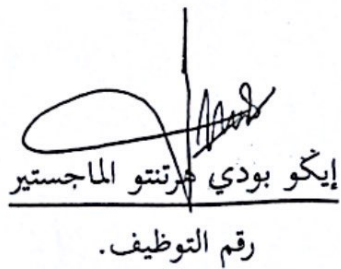 إيكو بودي هرتنتو الماجستير
رقم التوظيف.